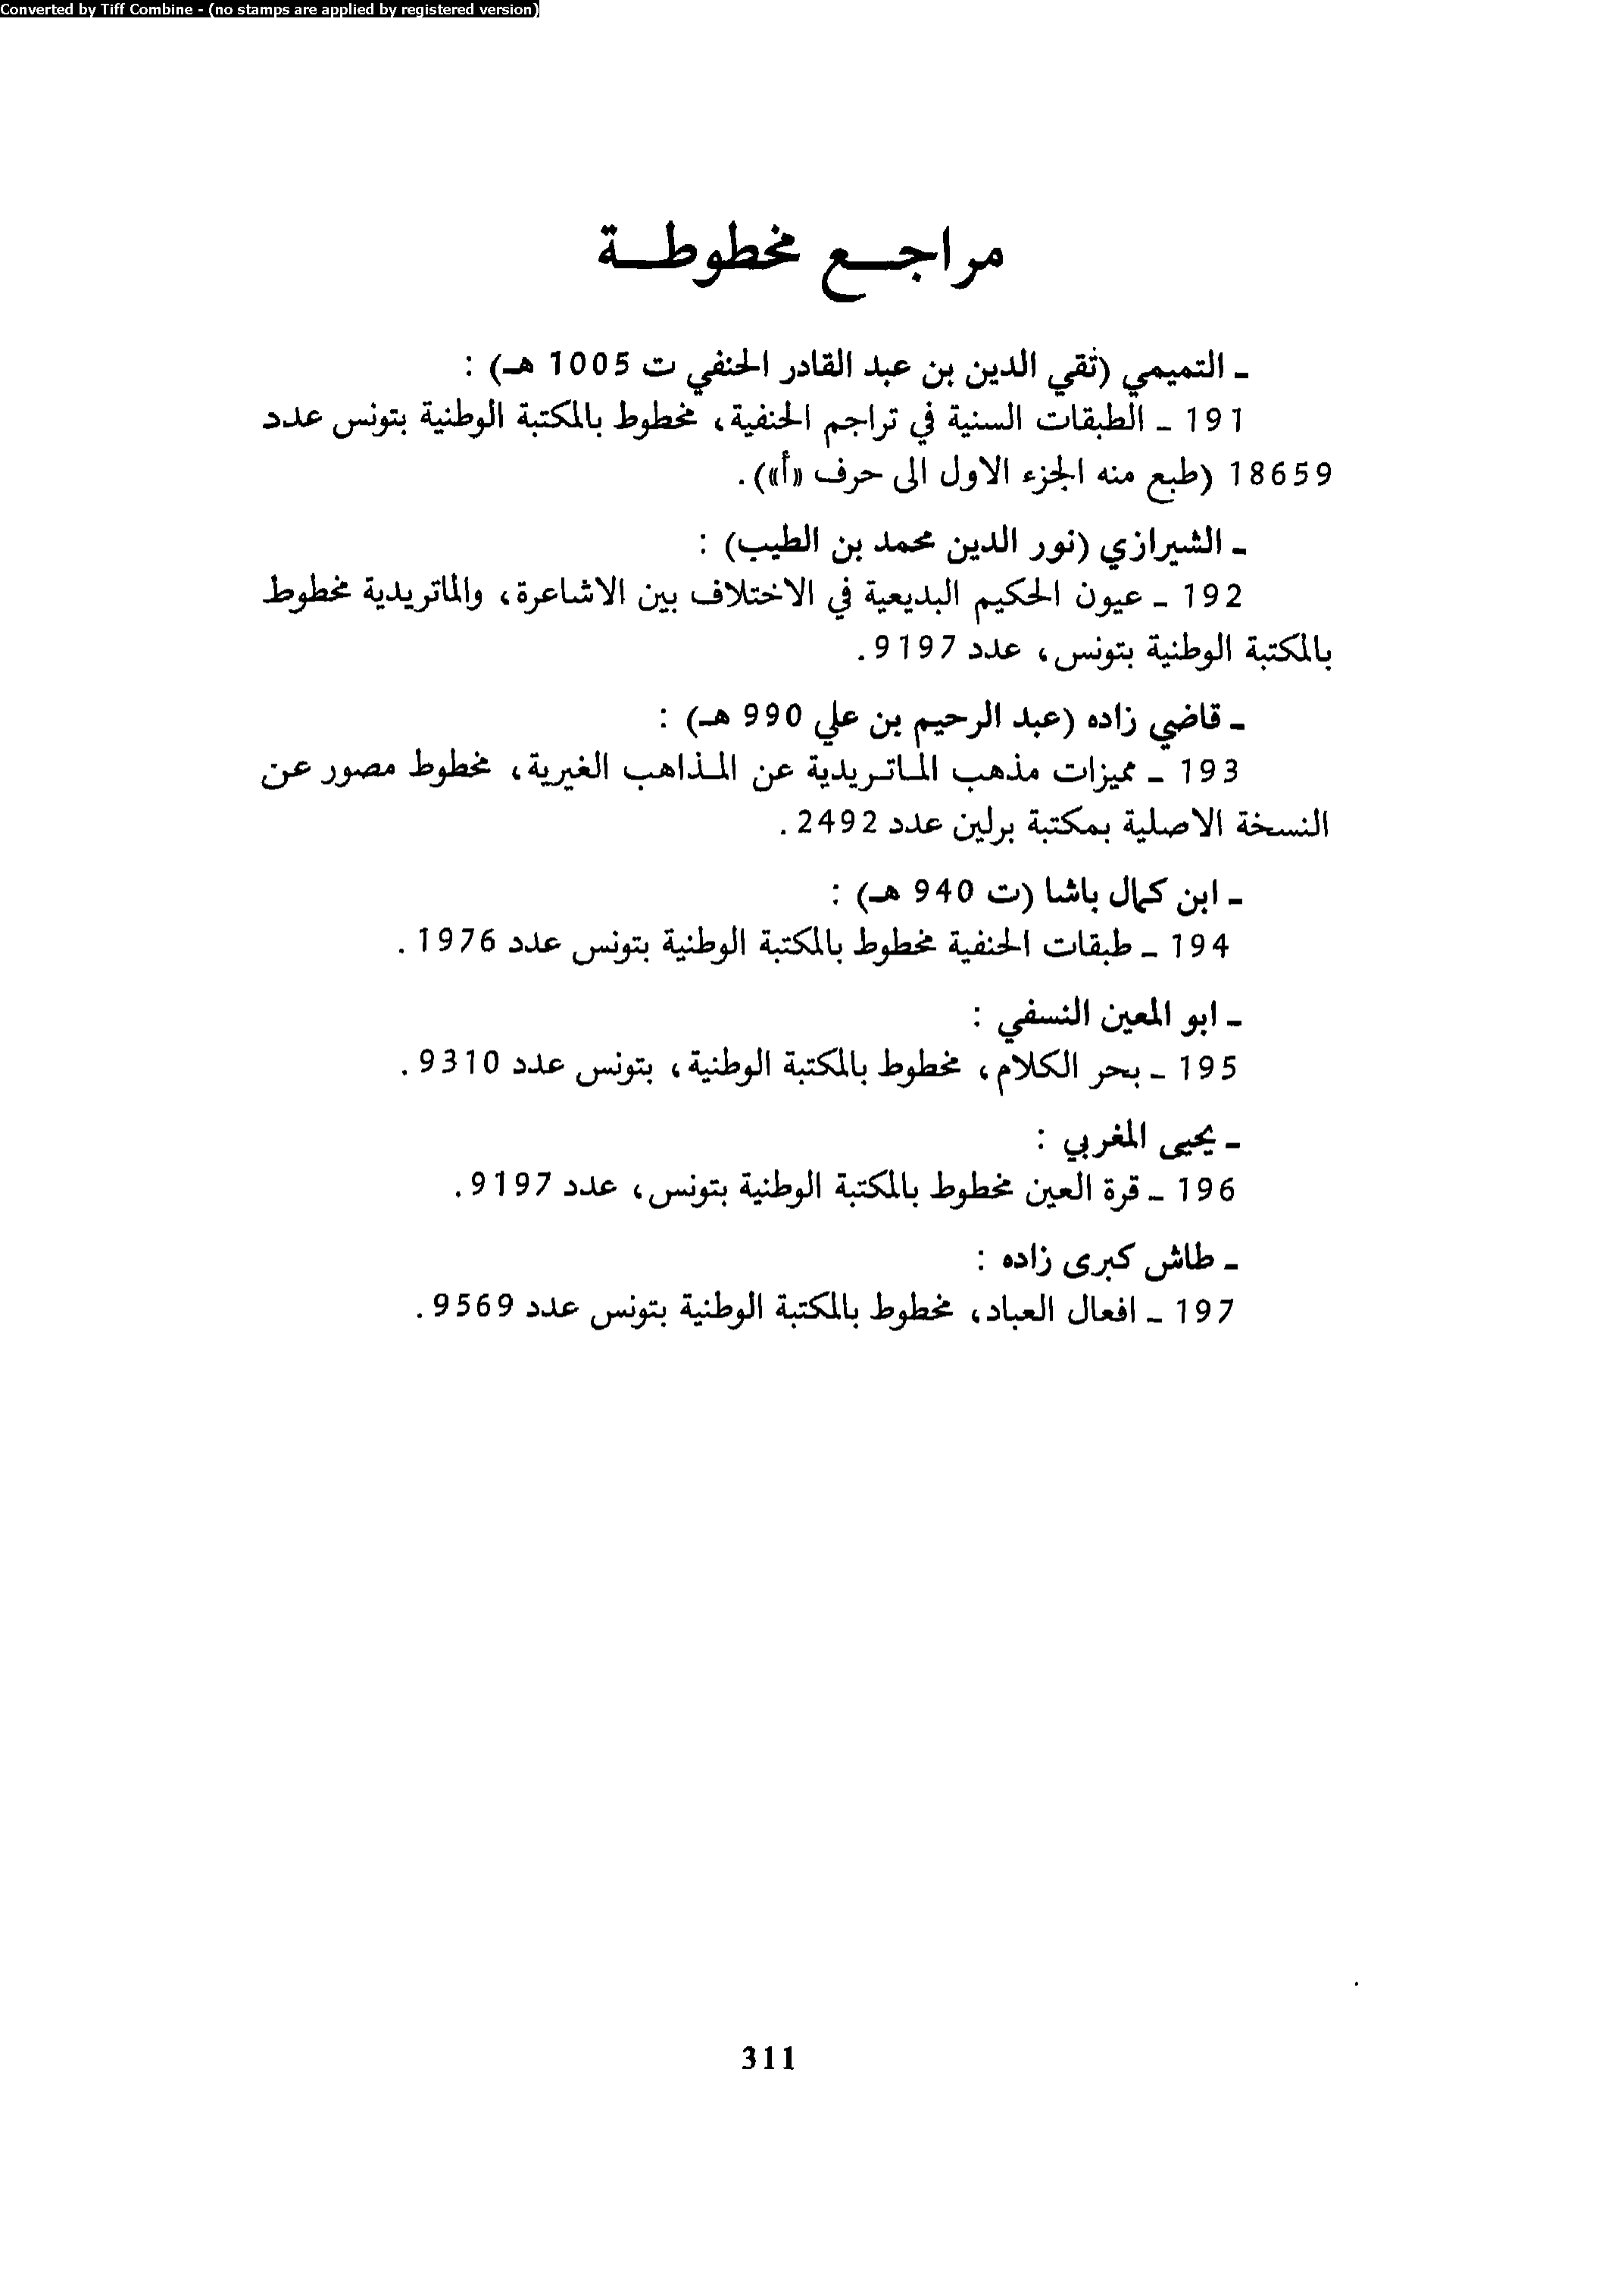 Converted by Tiff Combine - (no stamps are applied by registered version)
مراجع مخطوطة
ـ التميمي (تقي الدين بن عبد القادر الحنفي ت 1005 هـ) :
191 ـ الطبقات السنية في تراجم الحنفية، مخطوط بالمكتبة الوطنية بتونس عدد
18659 (طبع منه الجزء الاول الى حرف «أ»).
ـ الشيرازي (نور الدين محمد بن الطيب) :
192 ـ عيون الحكيم البديعية في الاختلاف بين الاشاعرة، والماتريدية مخطوط
بالمكتبة الوطنية بتونس، عدد 9197.
ـ قاضي زاده (عبد الرحيم بن علي 990 هـ) :
193 ـ مميزات مذهب الماتريدية عن المذاهب الغيرية، مخطوط مصور عن
النسخة الاصلية بمكتبة برلين عدد 2492.
ـ ابن كمال باشا (ت 940 هـ) :
194 ـ طبقات الحنفية مخطوط بالمكتبة الوطنية بتونس عدد 1976.
ـ ابو المعين النسفي :
195 ـ بحر الكلام، مخطوط بالمكتبة الوطنية، بتونس عدد 9310.
ـ يحيى المغربي :
196 ـ قرة العين مخطوط بالمكتبة الوطنية بتونس، عدد 9197.
ـ طاش كبرى زاده :
197 ـ افعال العباد، مخطوط بالمكتبة الوطنية بتونس عدد 9569.
311